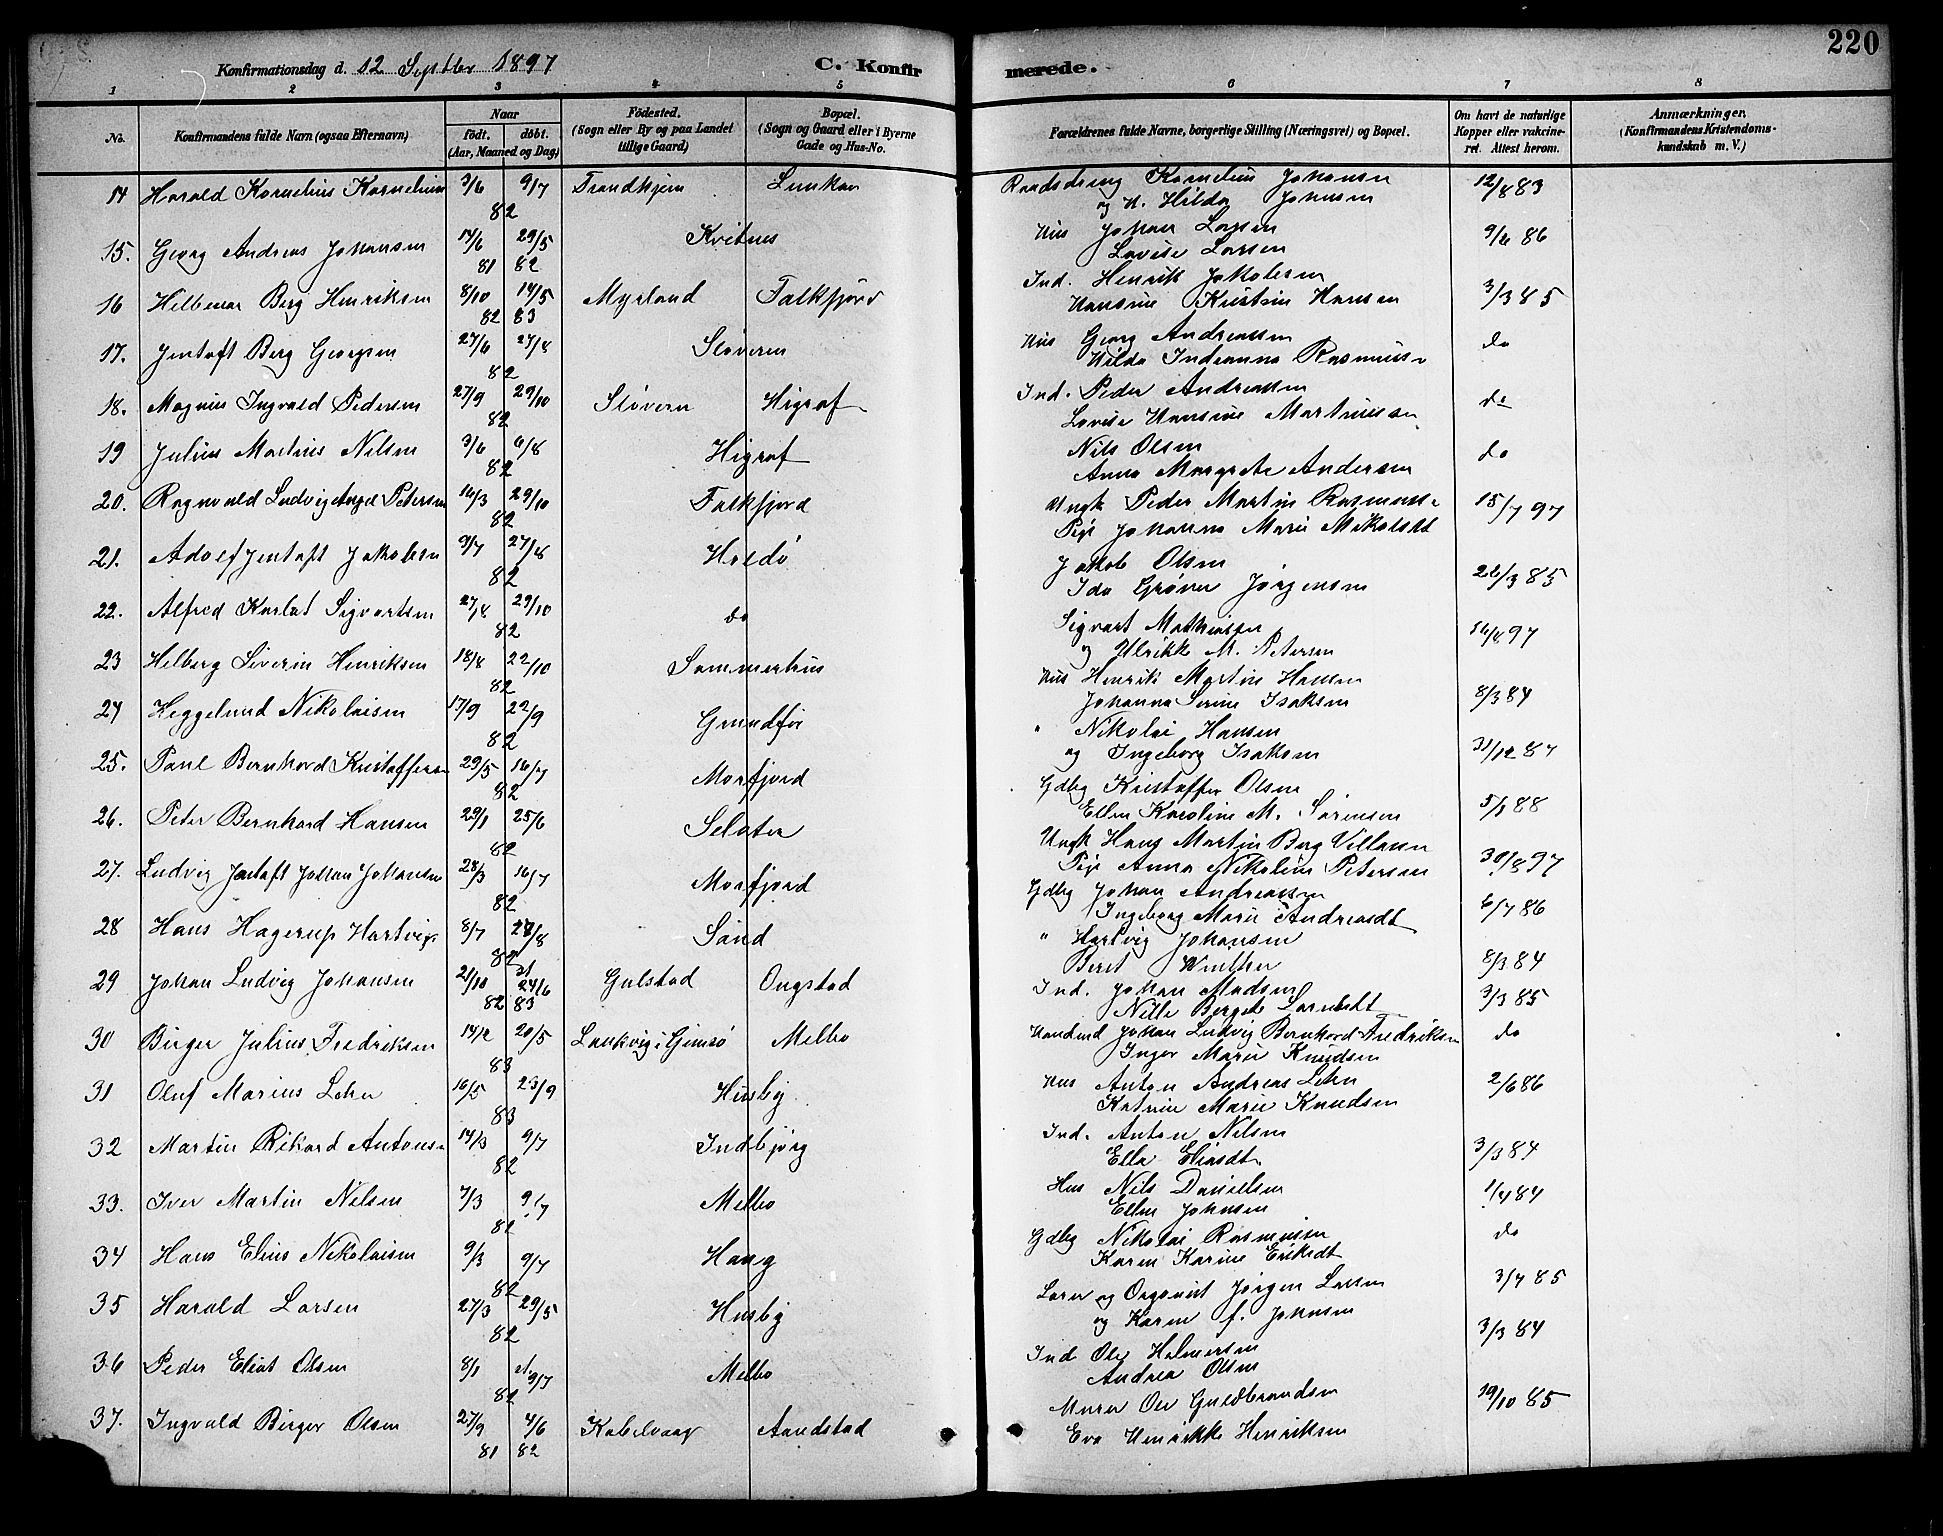 220
Konfirmationsdag d. 12 Septbr 1897 C. Konfirmerede.
1 2 3 4 5 6 7 8
No. Konfirmandens fulde Navn (ogsaa Efternavn) Naar født. døbt. (Aar, Maaned og Dag) Fødested. (Sogn eller By og paa Landet tillige Gaard) Bopæl. (Sogn og Gaard eller i Byerne Gade og Hus-No. Forældrenes fulde Navne, borgerlige Stilling (Næringsvei) og Bopæl. Om havt de naturlige Kopper eller vakcineret. Attest herom. Anmærkninger. (Konfirmandens Kristendomskundskab m. V.)
14 Harald Kornelius Kornelius 3/6 9/7 82 Trondhjem Kornelius Johansen 12/8 83
og H. Hilda Johnsen
15. Georg Andreas Johansen 17/6 81 29/5 82 Kvitnes Hus Johan Larsen 9/6 86
Lovise Larsen
16 Hilbenar Berg Henriksen 8/10 82 14/5 83 Myrland Falkfjord Ind. Henrik Jakobsen 3/3 85
Hansine Kristine Hansen
17. Jentoft Berg Georgsen 27/6 27/8 82 Sløveren Hus Georg Andreassen do
Hilda Indianna Rasmusse
18. Magnus Ingvald Pedersen 27/9 29/10 82 Sløveren Higraf Ind. Peder Andreassen do
Lovise Hansine Martinussen
19 Julius Martius Nilsen 3/6 6/8 82 Higraf Nils Olsen do
Anna Margrete Andersen
20. Ragnvald Ludvig Angel Petersen 16/3 29/10 82 Falkfjord Ungk Peder Martin Rasmusse 15/7 97
Pige Johanna Marie Mikalsdt
21. Adolf Jentoft Jakobsen 9/7 27/8 82 Hvedø Jakob Olsen 26/3 85
Ida Grøner Jørgensen
22. Alfred Karlot Sigvartsen 27/8 29/10 82 do Sigvart Mathiassen 16/8 97
og Ulrikke M. Petersen
23 Helberg Siverin Henriksen 18/8 22/10 82 Sommerhus Hus Henrik Martin Hansen 8/3 84
Johanna Serine Isaksen
24 Heggelund Nikolaisen 17/9 22/9 82 Grundfør " Nikolai Hansen 31/12 87
og Ingeborg Isaksen
25. Paul Bernhard Kristoffersen 29/5 16/7 82 Morfjord Gdbg Kristoffer Olsen 5/8 88
Ellen Karoline M. Sørensen
26. Peter Bernhard Hansen 29/1 25/6 82 Selater Ungk Hans Martin Berg Villassen 30/8 97
Pige Anna Nikoline Petersen
27. Ludvig Jentoft Johan Johansen 28/3 16/7 82 Morfjord Gdbg Johan Andreassen 6/7 86
Ingeborg Marie Andreasdt
28 Hans Hagerup Hartvigs 8/7 27/8 82 Sand " Hartvig Johansen 8/3 84
Beret Winther
29 Johan Ludvig Johansen 21/10 82 24/6 83 Gulstad Ongstad Ind. Johan Madsen 3/3 85
Nille Bergete Larsdt
30 Birger Julius Fredriksen 14/2 20/5 83 Laukvig i Gimsø Melbo Johan Ludvig Bernhard Fredriksen do
Inger Marie Knudsen
31 Oluf Marius Lehn 16/5 23/9 83 Husby Hus Anton Andreas Lehn 2/6 86
Katrine Marie Knudsen
32 Martin Rikard Antonse 14/3 9/7 82 Indbjørg Ind. Anton Nilsen 3/3 84
Ella Eliasdt
33. Iver Martin Nilsen 7/3 9/7 82 Melbo Hus Nils Danielsen 1/4 84
Ellen Johnsen
34 Hans Elius Nikolaisen 9/3 9/7 82 Haug Gdbg Nikolai Rasmussen do
Karen Karine Eriksdt
35 Harald Larsen 27/3 29/5 82 Husby Lærer og Organist Jørgen Larsen 3/7 85
og Karen f. Johnsen
36 Peder Eliot Olsen 8/1 9/7 82 Melbo Ind Ole Helmersen 3/3 84
Andrea Olsen
37. Ingvald Birger Olsen 27/9 81 4/6 82 Kabelvaag Aandstad Murer Ole Guldbrandsen 19/10 85
Eva Henrikke Henriksen